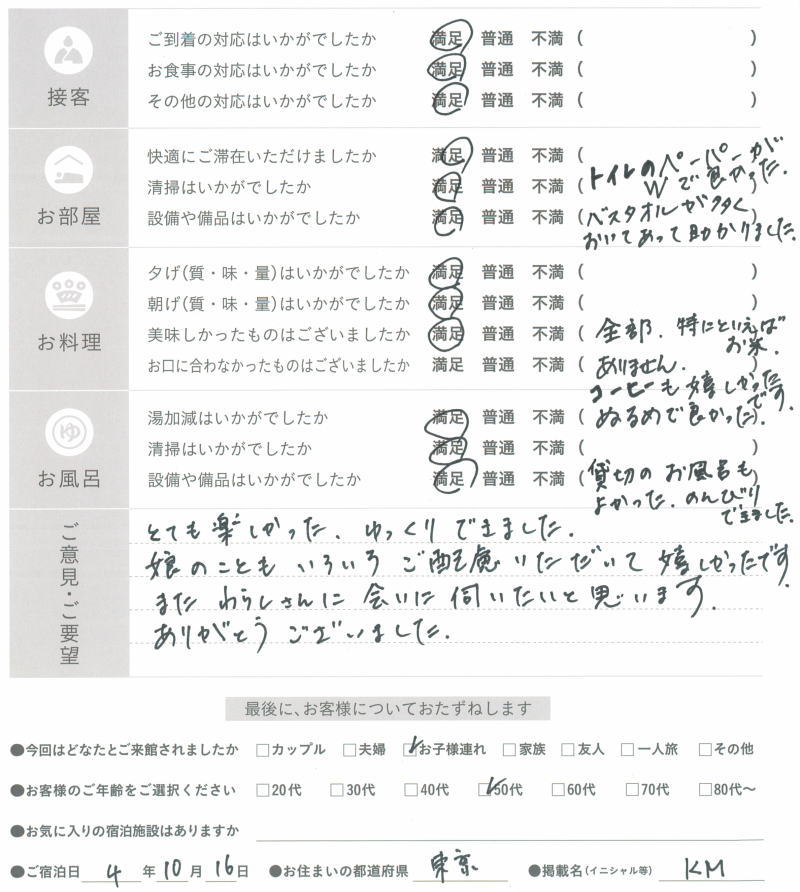 接客
ご到着の対応はいかがでしたか 満足 普通 不満 ( )
お食事の対応はいかがでしたか 満足 普通 不満 ( )
その他の対応はいかがでしたか 満足 普通 不満 ( )
お部屋
快適にご滞在いただけましたか 満足 普通 不満 ( トイレのペーパーが
清掃はいかがでしたか 満足 普通 不満 ( Wで良かった。
設備や備品はいかがでしたか 満足 普通 不満 ( バスタオルが多く )
おいてあって助かりました。
お料理
夕げ(質・味・量)はいかがでしたか 満足 普通 不満 ( )
朝げ(質・味・量)はいかがでしたか 満足 普通 不満 ( )
美味しかったものはございましたか 満足 普通 不満 ( 全部、特にといえば
お米。
お口に合わなかったものはございましたか 満足 普通 不満 ( ありません。 )
コーヒーも嬉しかった
です。
お風呂
ゆ
湯加減はいかがでしたか 満足 普通 不満 ( ぬるめで良かった )
清掃はいかがでしたか 満足 普通 不満 ( )
設備や備品はいかがでしたか 満足 普通 不満 ( 貸切のお風呂も )
よかった。のんびり
できました。
ご意見・ご要望
とても楽しかった、ゆっくりできました。
娘のことも いろいろ ご配慮いただいて 嬉しかったです
また わらしさんに 会いに 伺いたいと思います。
ありがとう ございました。
最後に、お客様についておたずねします
●今回はどなたとご来館されましたか □カップル □夫婦 ☑お子様連れ □家族 □友人 □一人旅 □その他
●お客様のご年齢をご選択ください □20代 □30代 □40代 ☑50代 □60代 □70代 □80代〜
●お気に入りの宿泊施設はありますか
●ご宿泊日 4 年 10 月 16 日 ●お住まいの都道府県 東京 ●掲載名(イニシャル等) KM